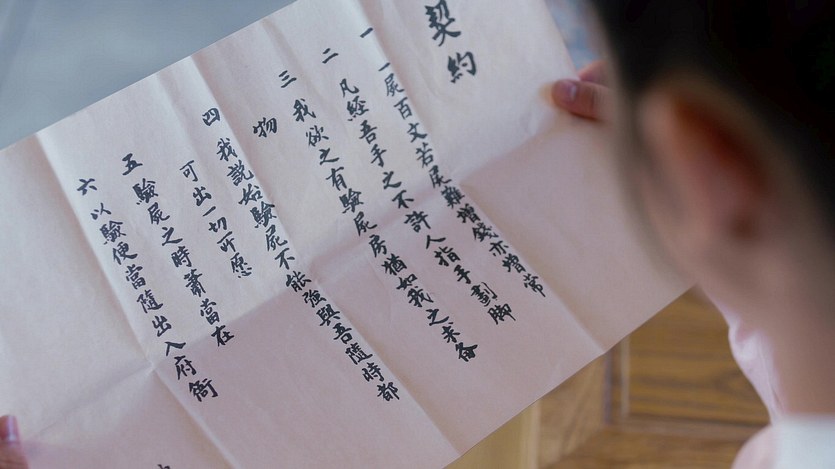 契約
一 一屍百文若屍難增錢亦增常
二 凡經吾手之不許人指手劃脚
三 我欲之有驗屍房猶如我之求备
物
四 我説始驗屍不能強與吾隨時都
可出一切所愿
五 驗屍之時蕭當在
六 以驗便當隨出入府衙